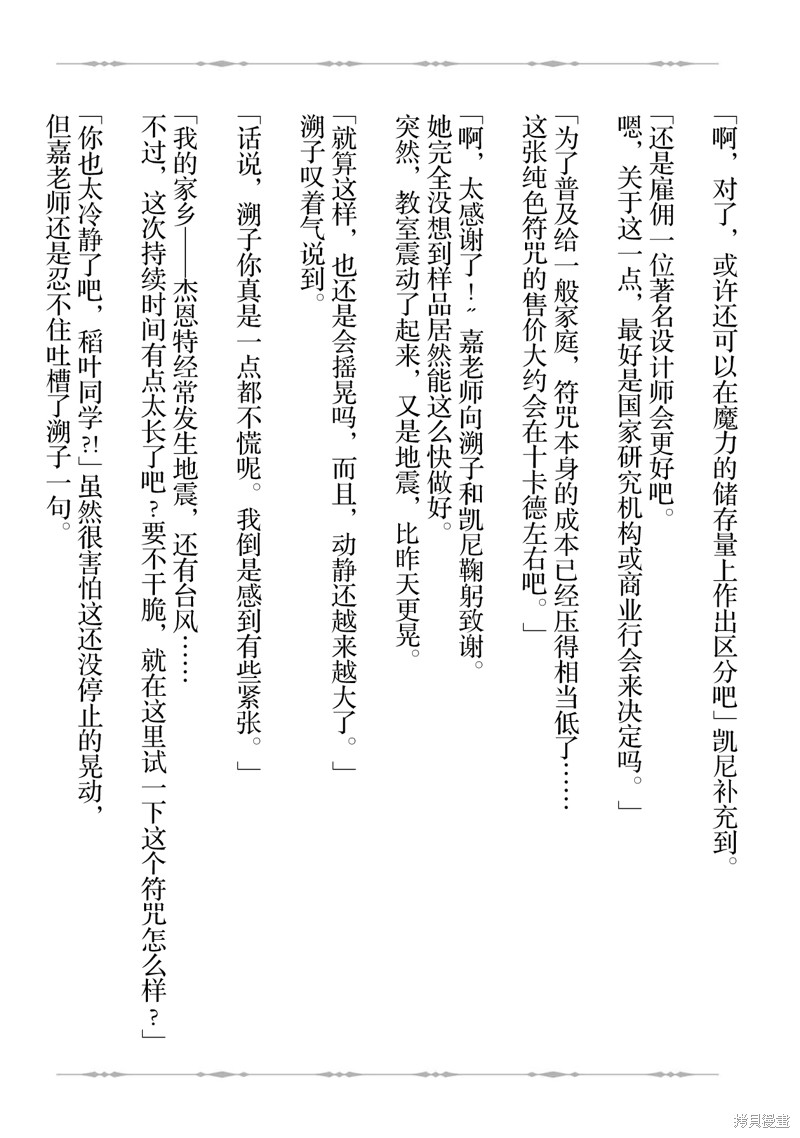 「啊，对了，或许还可以在魔力的储存量上作出区分吧」凯尼补充到。
「还是雇佣一位著名设计师会更好吧。
嗯，关于这一点，最好是国家研究机构或商业行会来决定吗。」
「为了普及给一般家庭，符咒本身的成本已经压得相当低了……
这张纯色符咒的售价大约会在十卡德左右吧。」
「啊，太感谢了！〞嘉老师向溯子和凯尼鞠躬致谢。
她完全没想到样品居然能这么快做好。
突然，教室震动了起来，又是地震，比昨天更晃。
「就算这样，也还是会摇晃吗，而且，动静还越来越大了。」
溯子叹着气说到。
「话说，溯子你真是一点都不慌呢。我倒是感到有些紧张。」
「我的家乡——杰恩特经常发生地震，还有台风……
不过，这次持续时间有点太长了吧？要不干脆，就在这里试一下这个符咒怎么样？」
「你也太冷静了吧，稻叶同学?!」虽然很害怕这还没停止的晃动，
但嘉老师还是忍不住吐槽了溯子一句。
拷貝漫畫